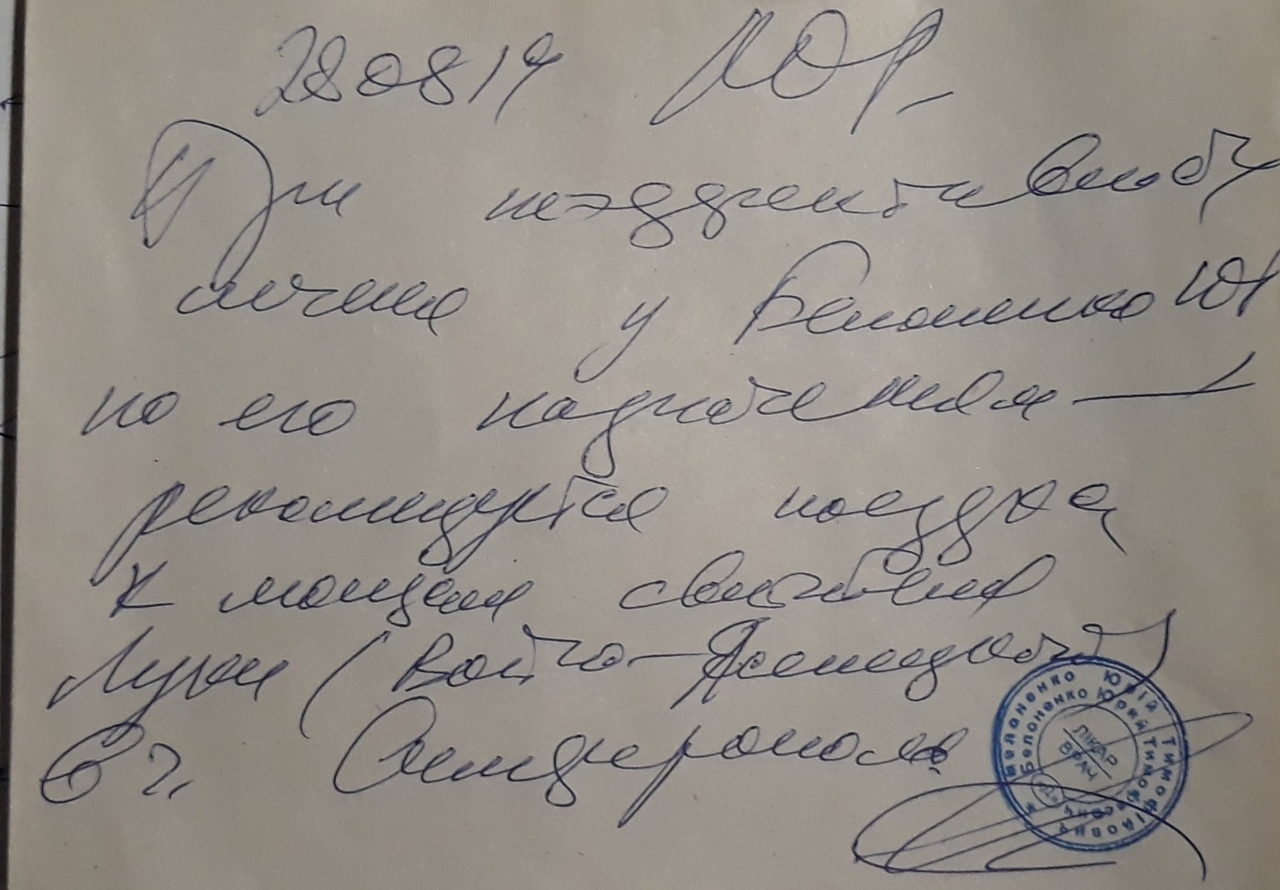 280819 ЛОР
При неэффективности
лечения у Белоненко Ю
по его назначениям —
рекомендуется поездка
к мощам святителя
Луки (Войно-Ясенецкого)
в г. Симферополь
Белоненко Юрій Тимофійович
Белоненко Юрий Тимофеевич
ЛІКАР
ВРАЧ